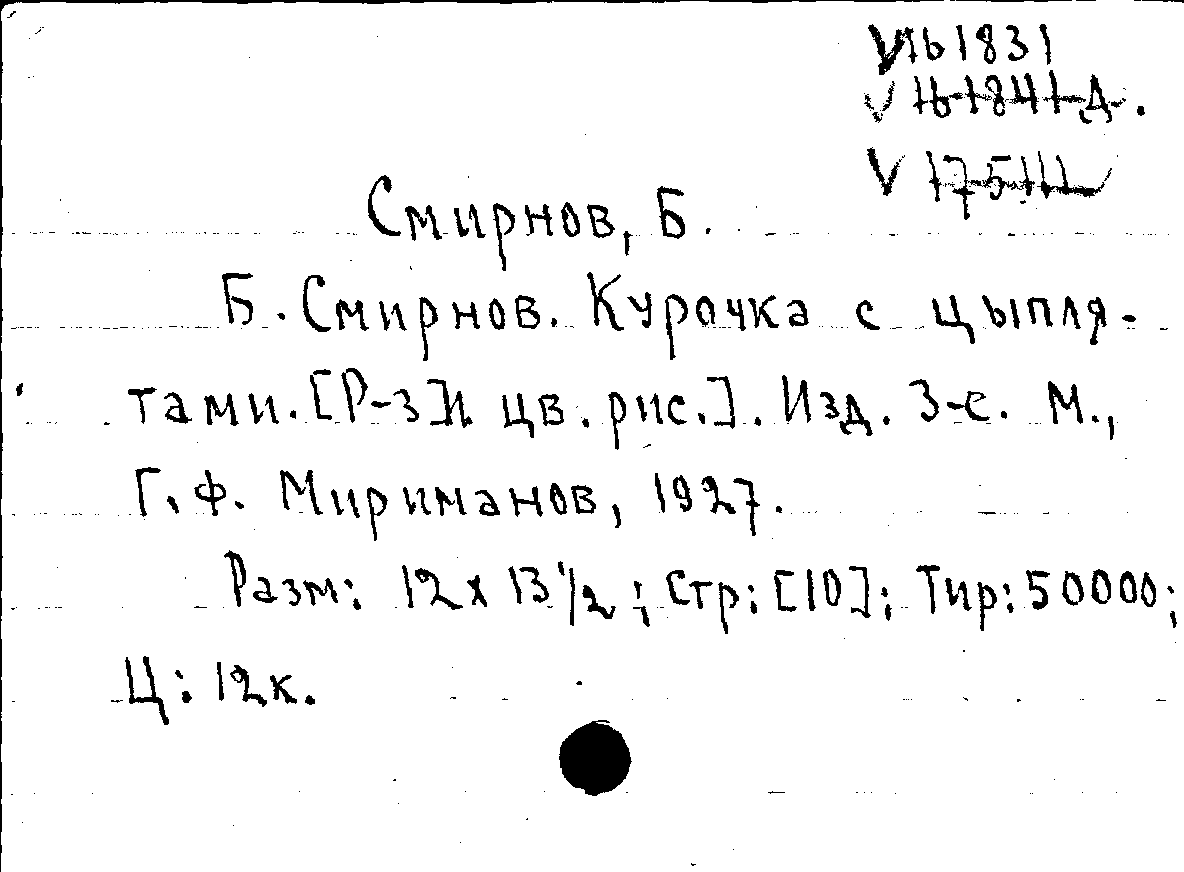 V161831
V 161841 д.
V 175111
Смирнов, Б.
Б. Смирнов. Курочка с цыпля-
тами. [Р-з] И цв. рис.]. Изд. 3-е. М.,
Г. Ф. Мириманов, 1927.
Разм: 12 х 13 1/2 ; Стр: [10]; Тир: 50000;
Ц: 12к.